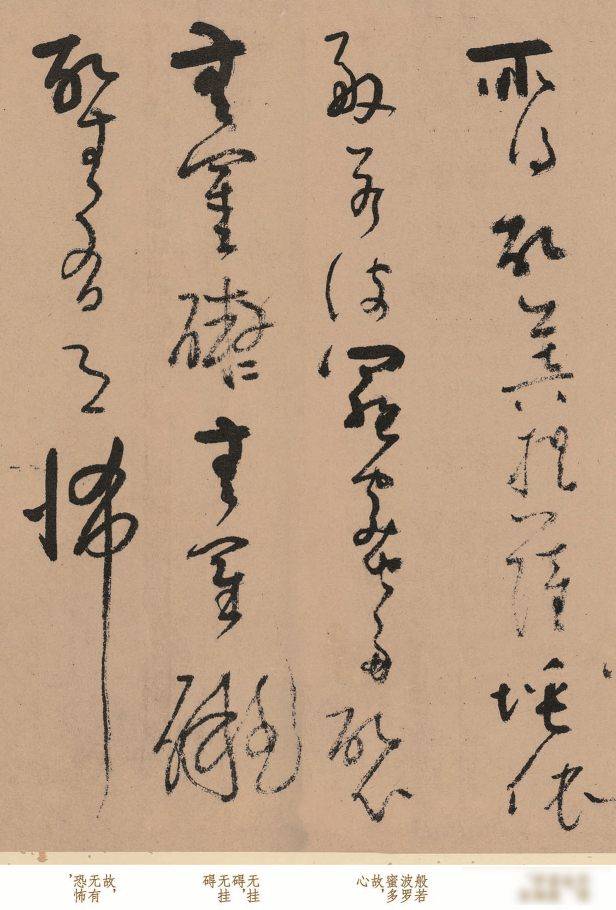 所得故菩提薩埵依
般若波羅蜜多故心
無罣礙無罣礙
故無有恐怖
般若波罗蜜多故，心
无挂碍，无挂碍
故，无有恐怖，